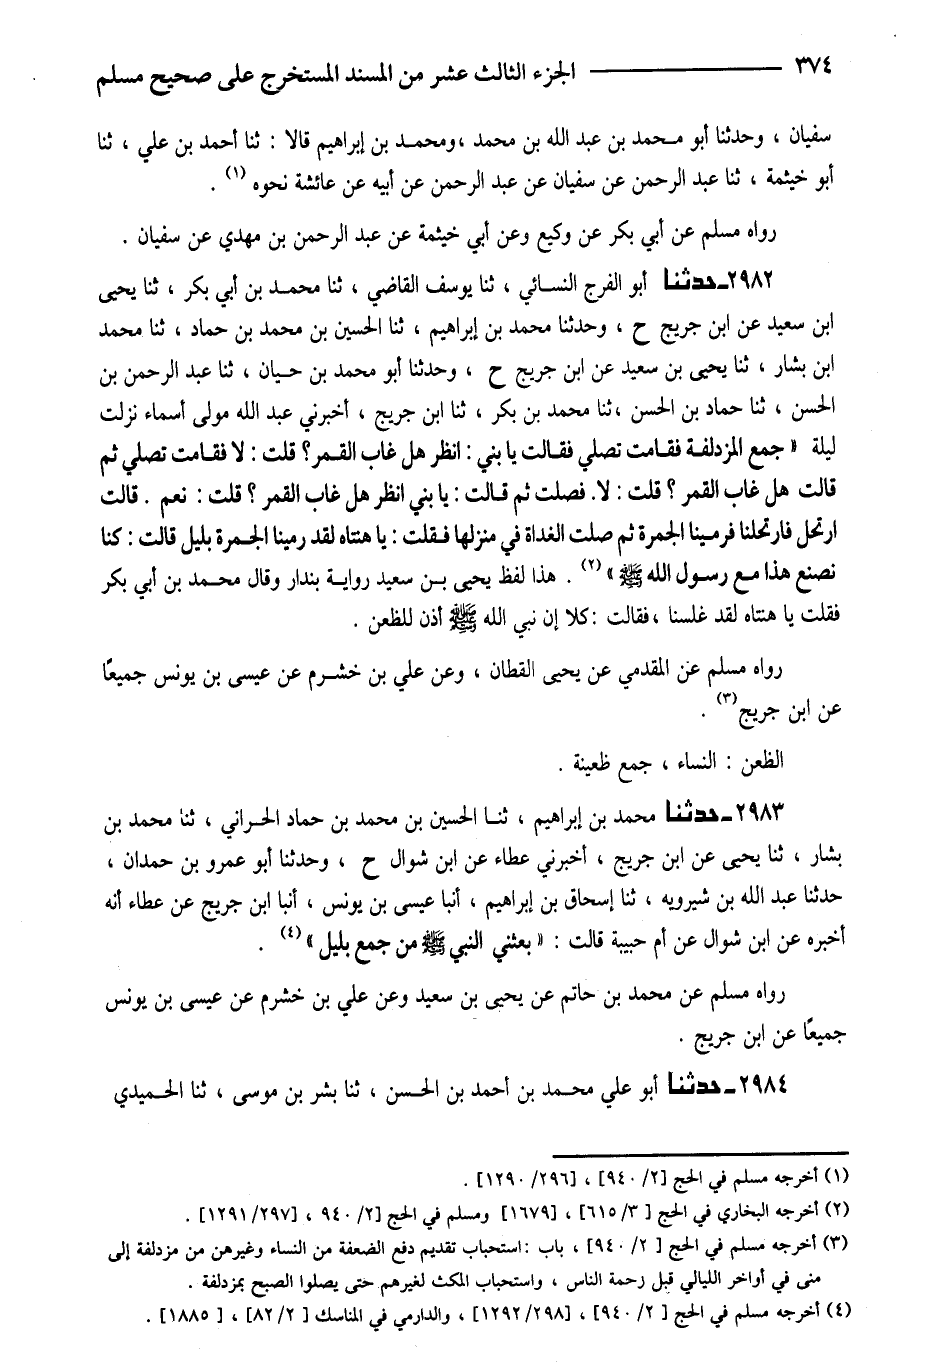 ٣٧٤ ــــــــــ الجزء الثالث عشر من المسند المستخرج على صحيح مسلم
سفيان ، وحدثنا أبو محمد بن عبد الله بن محمد ،ومحمد بن إبراهيم قالا : ثنا أحمد بن علي ، ثنا
أبو خيثمة ، ثنا عبد الرحمن عن سفيان عن عبد الرحمن عن أبيه عن عائشة نحوه (١) .
رواه مسلم عن أبي بكر عن وكيع وعن أبي خيثمة عن عبد الرحمن بن مهدي عن سفيان .
٢٩٨٢ـ حدثنا أبو الفرج النسائي ، ثنا يوسف القاضي ، ثنا محمد بن أبي بكر ، ثنا يحيى
ابن سعيد عن ابن جريج ح ، وحدثنا محمد بن إبراهيم ، ثنا الحسين بن محمد بن حماد ، ثنا محمد
ابن بشار ، ثنا يحيى بن سعيد عن ابن جريج ح ، وحدثنا أبو محمد بن حيان ، ثنا عبد الرحمن بن
الحسن ، ثنا حماد بن الحسن ،ثنا محمد بن بكر ، ثنا ابن جريج ، أخبرني عبد الله مولى أسماء نزلت
ليلة « جمع المزدلفة فقامت تصلي فقالت يا بني : انظر هل غاب القمر؟ قلت : لا فقامت تصلي ثم
قالت هل غاب القمر ؟ قلت : لا. فصلت ثم قالت : يا بني انظر هل غاب القمر ؟ قلت : نعم . قالت
ارتحل فارتحلنا فرمينا الجمرة ثم صلت الغداة في منزلها فقلت : يا هنتاه لقد رمينا الجمرة بليل قالت : كنا
نصنع هذا مع رسول الله ﷺ » (٢) . هذا لفظ يحيى بن سعيد رواية بندار وقال محمد بن أبي بكر
فقلت يا هنتاه لقد غلسنا ،فقالت :كلا إن نبي الله ﷺ أذن للظعن .
رواه مسلم عن المقدمي عن يحيى القطان ، وعن علي بن خشرم عن عيسى بن يونس جميعًا
عن ابن جريج (٣) .
الظعن : النساء ، جمع ظعينة .
٢٩٨٣ـ حدثنا محمد بن إبراهيم ، ثنا الحسين بن محمد بن حماد الحراني ، ثنا محمد بن
بشار ، ثنا يحيى عن ابن جريج ، أخبرني عطاء عن ابن شوال ح ، وحدثنا أبو عمرو بن حمدان ،
حدثنا عبد الله بن شيرويه ، ثنا إسحاق بن إبراهيم ، أنبا عيسى بن يونس ، أنبا ابن جريج عن عطاء أنه
أخبره عن ابن شوال عن أم حبيبة قالت : « بعثني النبي ﷺ من جمع بليل » (٤) .
رواه مسلم عن محمد بن حاتم عن يحيى بن سعيد وعن علي بن خشرم عن عيسى بن يونس
جميعًا عن ابن جريج .
٢٩٨٤ـ حدثنا أبو علي محمد بن أحمد بن الحسن ، ثنا بشر بن موسى ، ثنا الحميدي
(١) أخرجه مسلم في الحج [٢/ ٩٤٠] ، [٢٩٦/ ١٢٩٠] .
(٢) أخرجه البخاري في الحج [ ٣/ ٦١٥] ، [١٦٧٩] ومسلم في الحج [٢/ ٩٤٠ ، [٢٩٧/ ١٢٩١] .
(٣) أخرجه مسلم في الحج [ ٢/ ٩٤٠] ، باب : استحباب تقديم دفع الضعفة من النساء وغيرهن من مزدلفة إلى
منى في أواخر الليالي قبل رحمة الناس ، واستحباب المكث لغيرهم حتى يصلوا الصبح بمزدلفة .
(٤) أخرجه مسلم في الحج [ ٢/ ٩٤٠] ، [٢٩٨/ ١٢٩٢] ، والدارمي في المناسك [ ٢/ ٨٢] ، [ ١٨٨٥] .